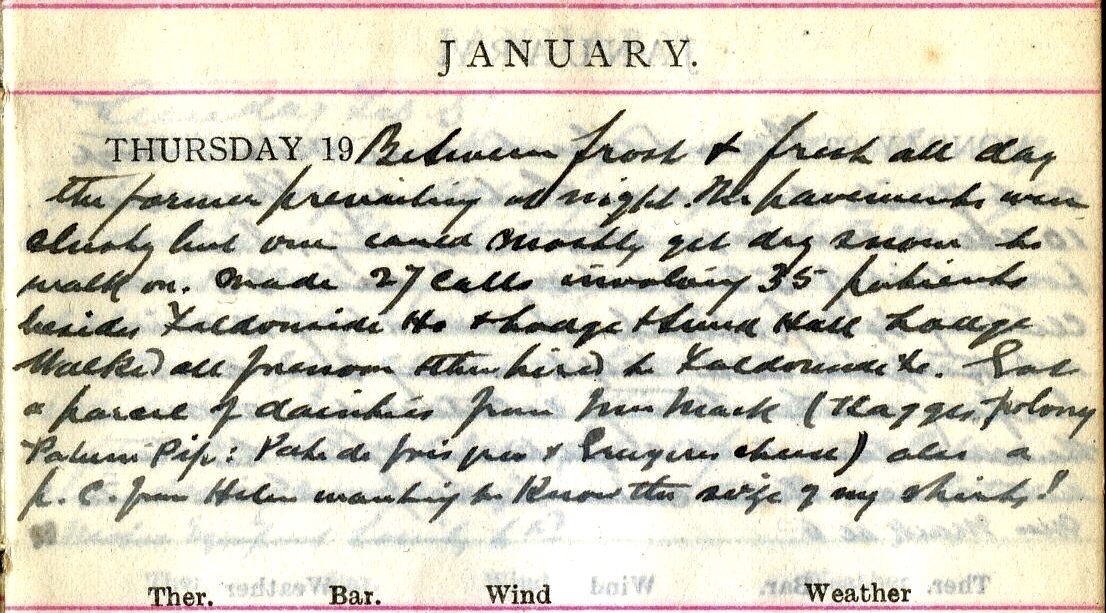 JANUARY.
THURSDAY 19 Between frost & fresh all day
the former prevailing at night. The pavements were
slushy but one could mostly get dry snow to
walk on. Made 27 Calls involving 35 patients
besides Faldonside Ho & Lodge & Hall Lodge
Walked all forenoon & then hired to Faldonside &c. Got
a parcel of dainties from Mrs Mack (Haggis, polony
Patum Pip: Pate de fois gras & Gruyere cheese) also a
p.c. from Helen wanting to know the size of my shirts!
Ther. Bar. Wind Weather